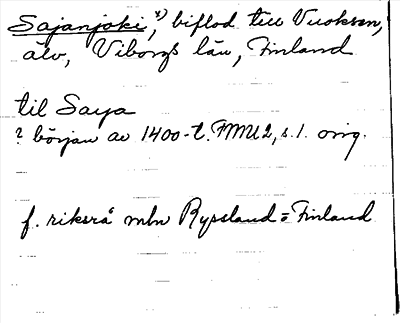 Sajanjoki,x) biflod till Vuoksen,
älv, Viborgs län, Finland
til Saya
? början av 1400-t. FMU 2, s. 1. orig.
f. riksrå mln Ryssland = Finland